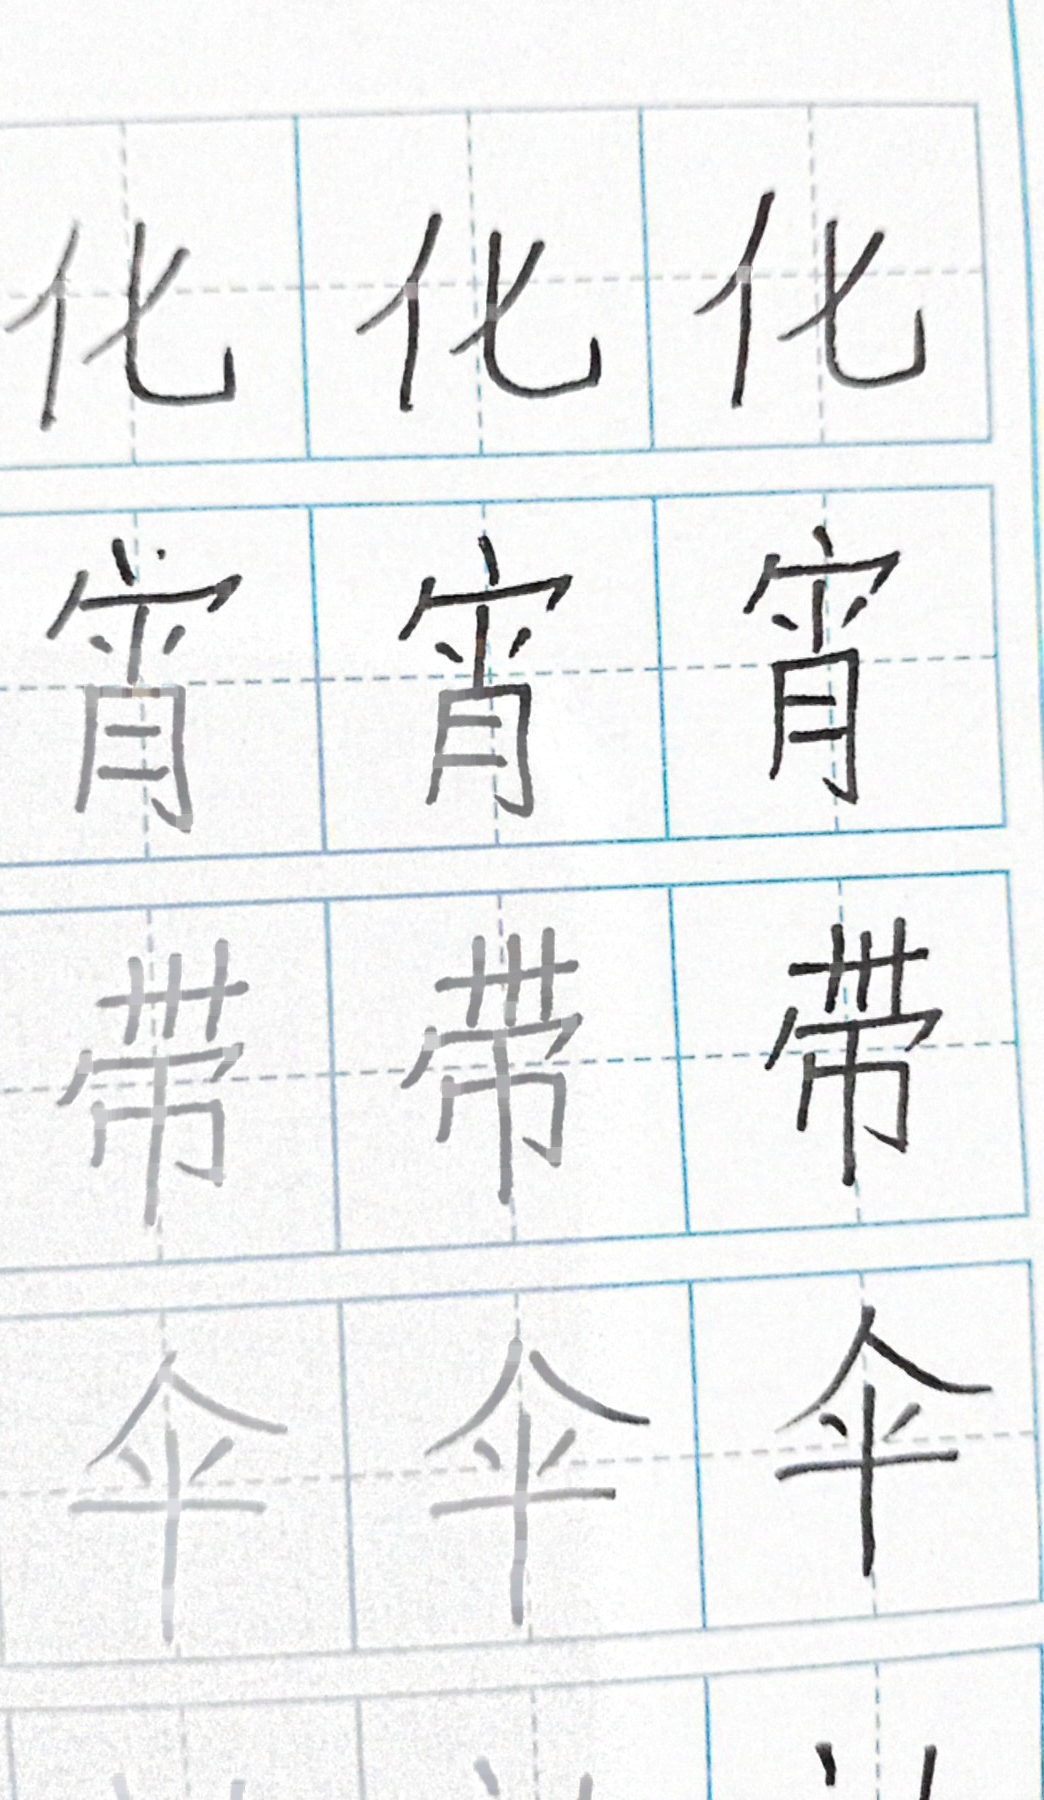 化化化
宵宵宵
带带带
伞伞伞